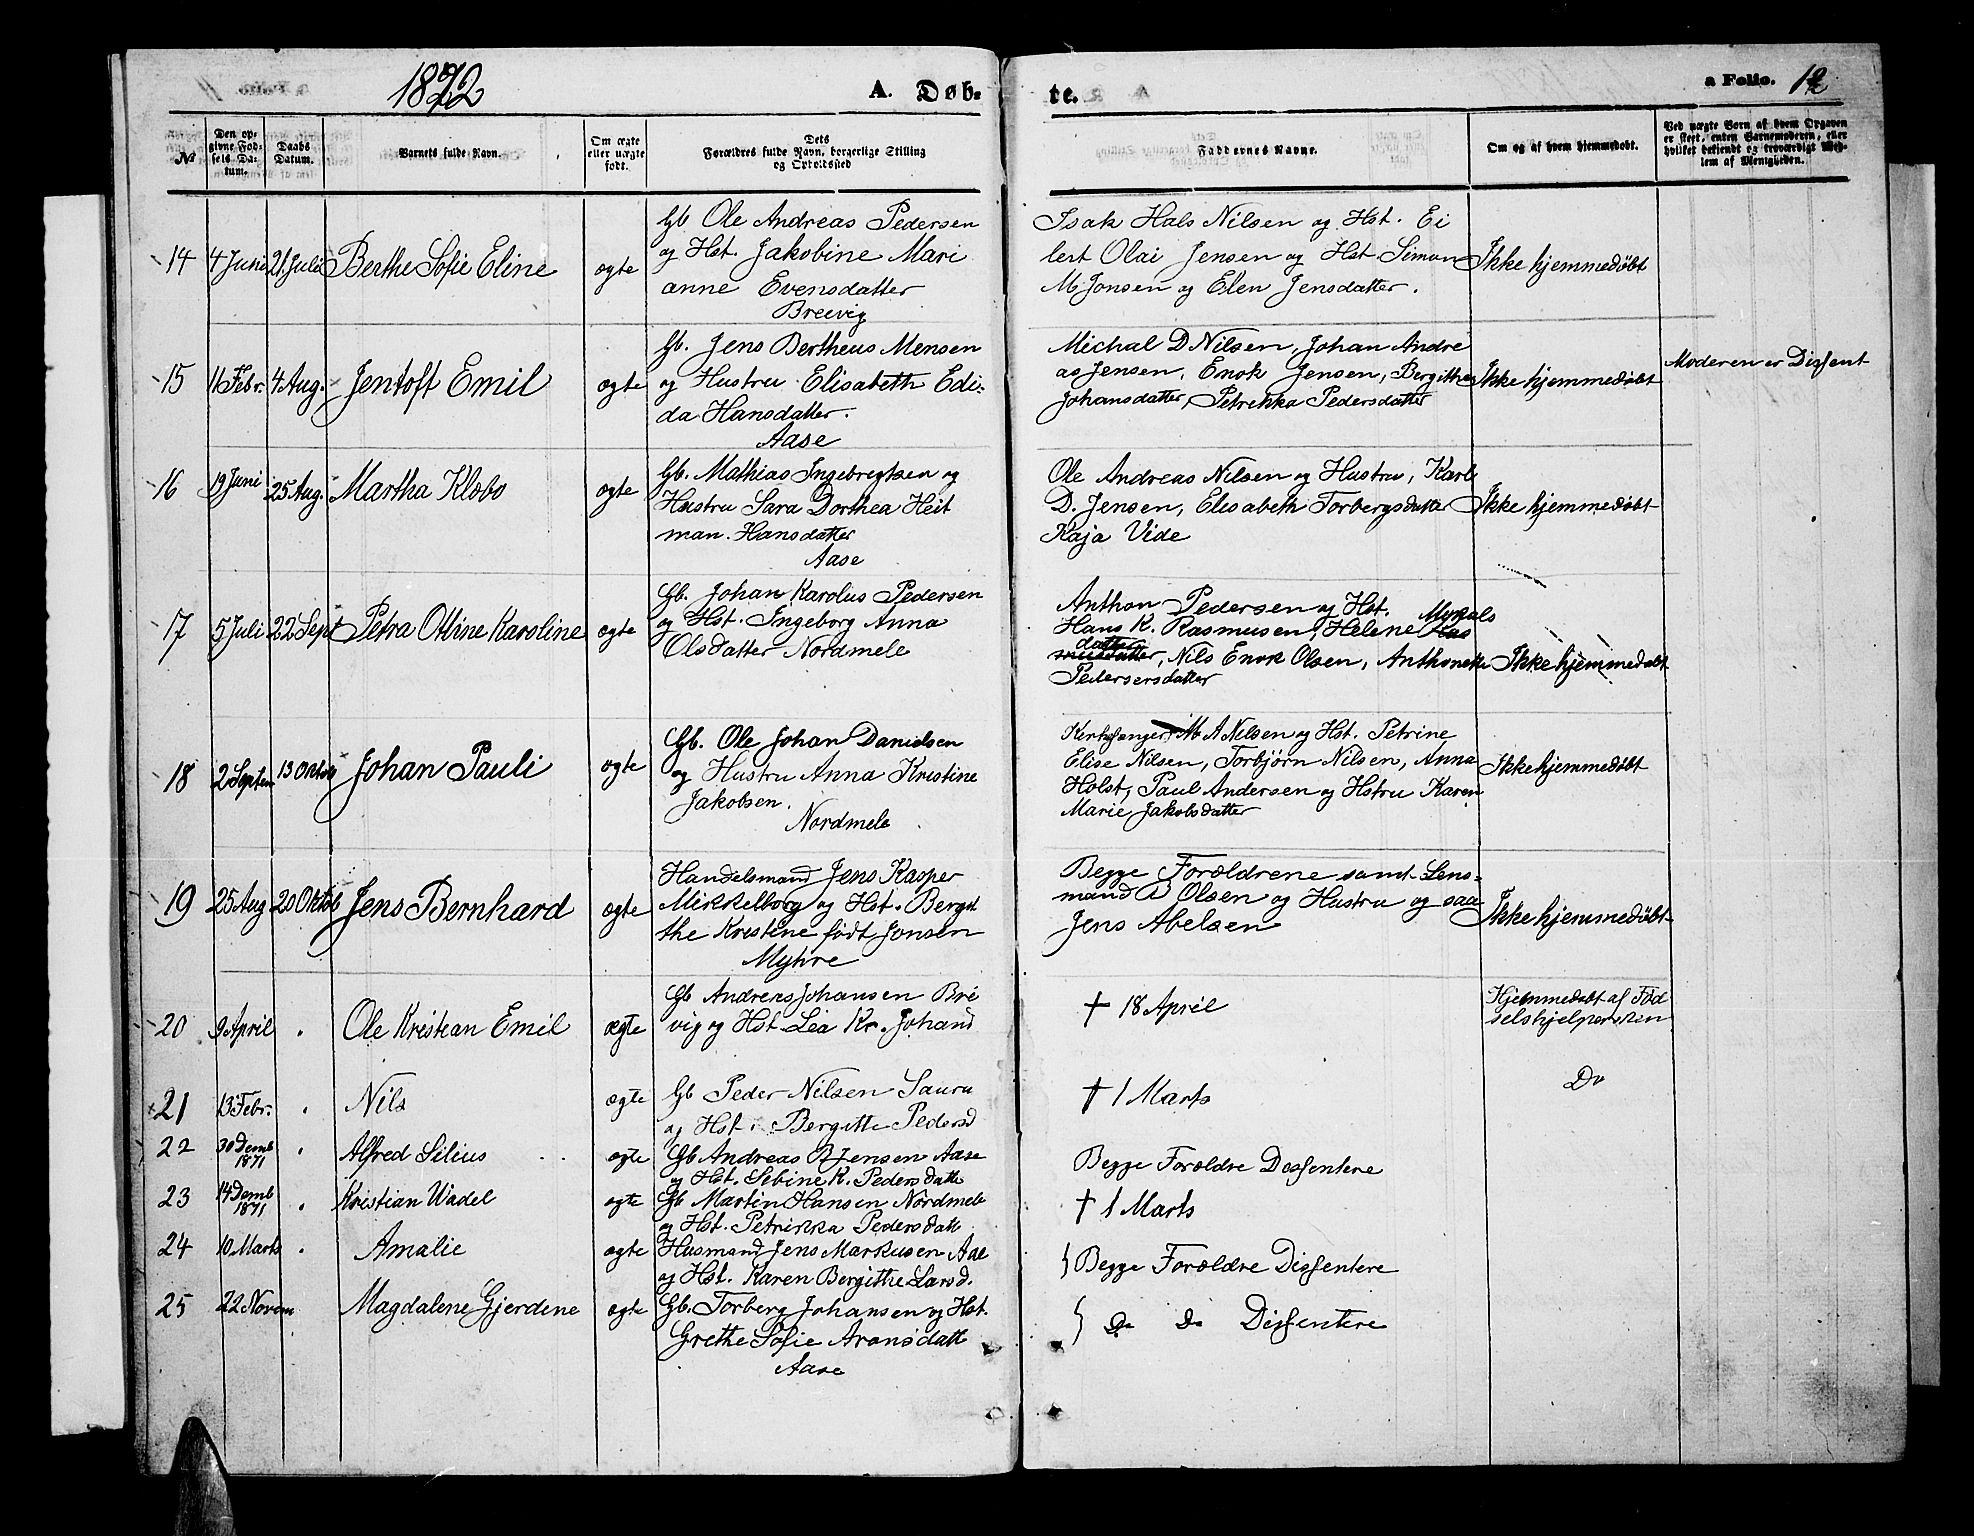 1872
A. Døb-
te.
a Folio. 12
No
Den op-
givne Fød-
sels Da-
tum.
Daabs
Datum.
Barnets fulde Navn.
Om ægte
eller uægte
født.
Dets
Forældres fulde Navn, borgerlige Stilling
og Opholdssted
Faddernes Navne.
Om og af hvem hjemmedøbt.
Ved uægte Børn af hvem Opgaven
er skeet, enten Barnemoderen, eller
hvilket bekjendt og troværdigt Med-
lem af Menigheden.
14 4 Juni 21. Juli Berthe Sofie Eline ægte
Gb Ole Andreas Pedersen
og Hst. Jakobine Mari
anne Evensdatter
Breivig
Isak Hals Nilsen og Hst. Ei
lert Olai Jensen og Hst. Simon
M Jonsen og Elen Jensdatter.
Ikke hjemmedøbt
15 11 Febr. 4 Aug. Jentoft Emil ægte
Gb. Jens Bertheus Mensen
og Hustru Elisabeth Edi-
da Hansdatter.
Aase
Michal D Nilsen, Johan Andre
as Jensen, Enok Jensen, Bergithe
Johansdatter, Petrikka Pedersdatter
Ikke hjemmedøbt
Moderen er Dissent
16 19 Juni 25 Aug. Martha Klobo ægte
Gb. Mathias Ingebregtsen og
Hustru Sara Dorthea Heit
man Hansdatter
Aase
Ole Andreas Nilsen og Hustru, Karl
D. Jensen, Elisabeth Torbergsdatter
Kaja Vide
Ikke hjemmedøbt
17 5 Juli 22 Sept Petra Otline Karoline ægte
Gb. Johan Karolus Pedersen
og Hst. Ingeborg Anna
Olsdatter Nordmele
Anthon Pedersen og Hst.
Hans K. Rasmusen, Helene Ras
musdatter, Nils Enok Olsen, Anthonette
Pedersersdatter
Ikke hjemmedøbt
18 2 Septem 13 Oktob Johan Pauli ægte
Gb. Ole Johan Danielsen
og Hustru Anna Kristine
Jakobsen.
Nordmele
Kirkesanger M A Nilsen og Hst. Petrine
Elise Nilsen, Torbjørn Nilsen, Anna
Holst, Paul Andersen og Hstru Karen
Marie Jakobsdatter
Ikke hjemmedøbt
19 25 Aug 20 Oktob Jens Bernhard ægte
Handelsmand Jens Kasper
Mikkelborg og Hst. Bergit
the Kristine født Jonsen
Myhre
Begge Forældrene samt Lens-
mand B Olsen og Hustru og saa
Jens Abelsen
Ikke hjemmedøbt
20 9 April Ole Kristian Emil ægte
Gb Andreas Johansen Bre
vig og Hst Lea Kr. Johansd
† 18 April
Hjemmedøbt af Fød
selshjelpersken
21 13 Febr. Nils ægte
Gb Peder Nilsen Saura
og Hst. Bergitte Pedersd
† 1 Marts
Do
22 30 Demb 1871 Alfred Silius ægte
Gb Andreas B Jensen Aase
og Hst. Sebine K. Pedersdatte
Begge Forældre Dissentere
23 14 Demb 1871 Kristian Wadel ægte
Gb Martin Hansen Nordmele
og Hst. Petrikka Pedersdatt
† 1 Marts
24 10 Marts Amalie ægte
Husmand Jens Markusen Aae
og Hst. Karen Bergithe Larsd.
Begge Forældre Dissentere
25 22 Novem Magdalene Gjerdine ægte
Gb. Torberg Johansen og Hst.
Grethe Sofie Aronsdatt
Aase
Do Do Dissentere